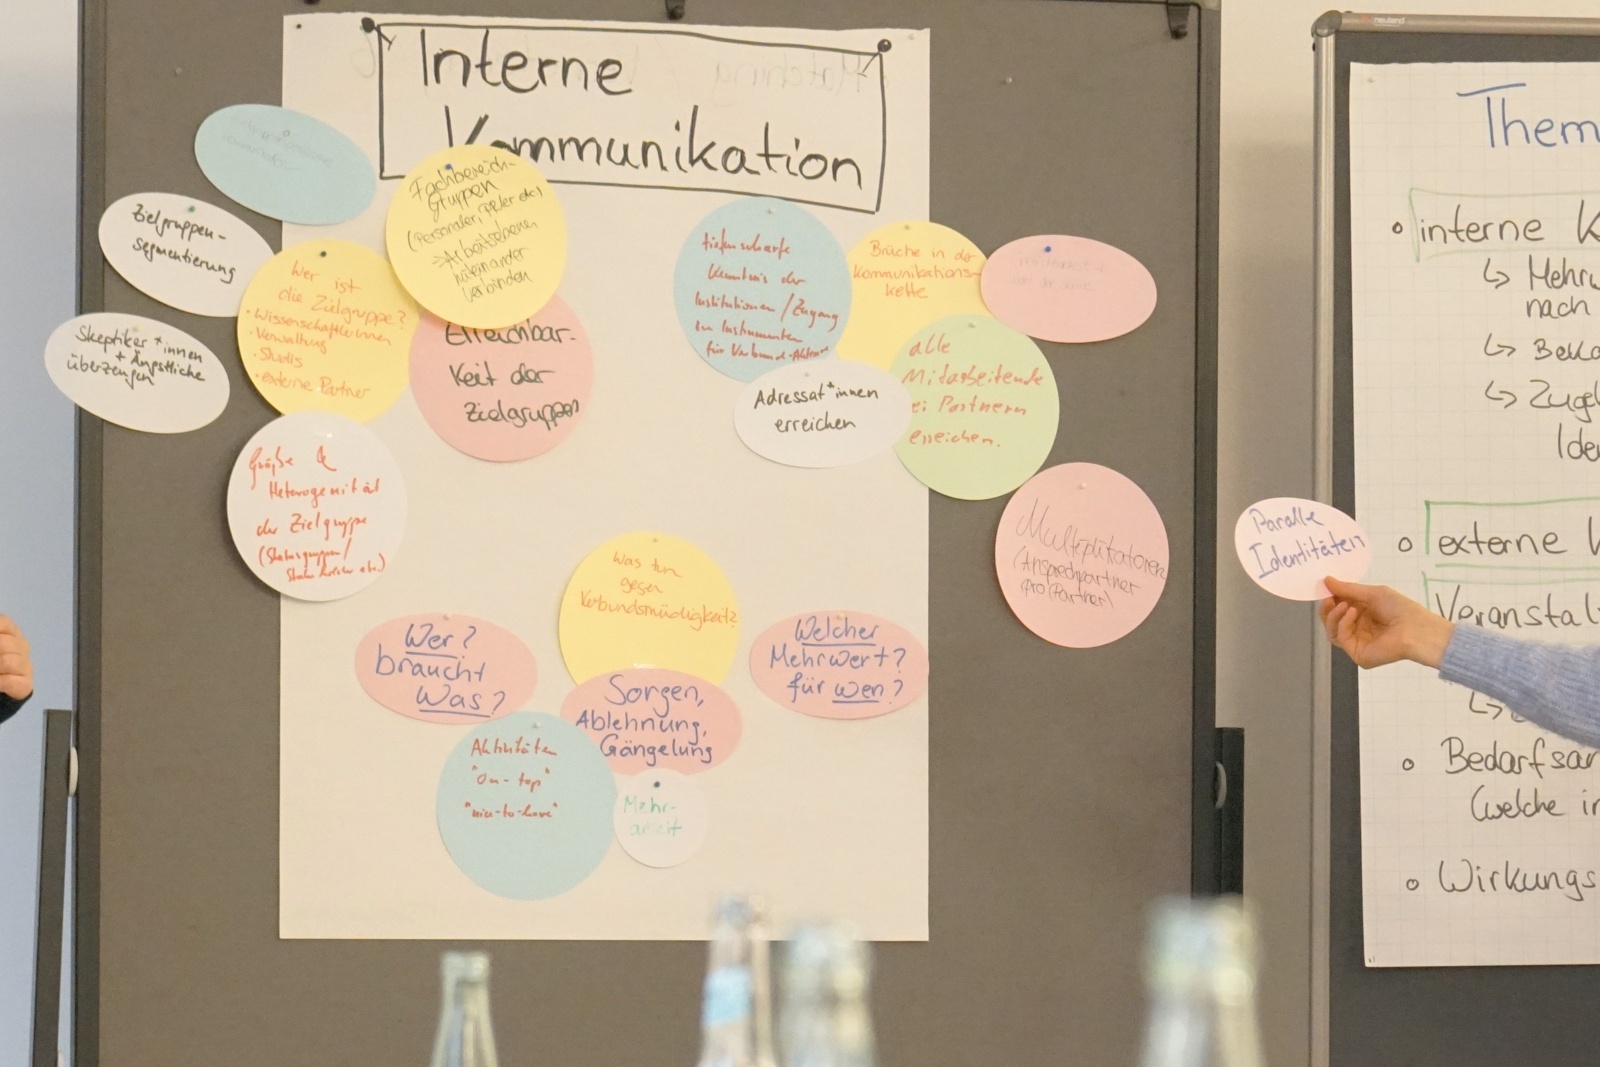 Interne
Kommunikation
Zielgruppen-
segmentierung
Skeptiker*innen
+ Ängstliche
überzeugen
Wer ist
die Zielgruppe?
• Wissenschaftlerinnen
• Verwaltung
• Studis
• externe Partner
Fachbereich-
Gruppen
(Personaler,
Arbeitsebenen
miteinander
verbinden
Erreichbar-
keit der
Zielgruppen
Größe &
Heterogenität
der Zielgruppe
(Statusgruppen/
tiefenscharfe
Kenntnis der
Institutionen/Zugang
zu Instrumenten
für Verbund-Akteure
Brüche in der
Kommunikations-
kette
alle
Mitarbeitende
bei Partnern
erreichen.
Adressat*innen
erreichen
Multiplikatoren
(Ansprechpartner
pro Partner)
Was tun
gegen
Verbundsmüdigkeit?
Wer?
braucht
Was?
Sorgen,
Ablehnung,
Gängelung
Welcher
Mehrwert?
für wen?
Aktivitäten
"on-top"
"nice-to-have"
Mehr-
arbeit
Paralle
Identitäten
neuland
Them
interne K
↳ Mehrw
nach
↳ Beko
↳ Zuge
Ide
externe K
Veranstal
Bedarfsan
(welche in
Wirkungs